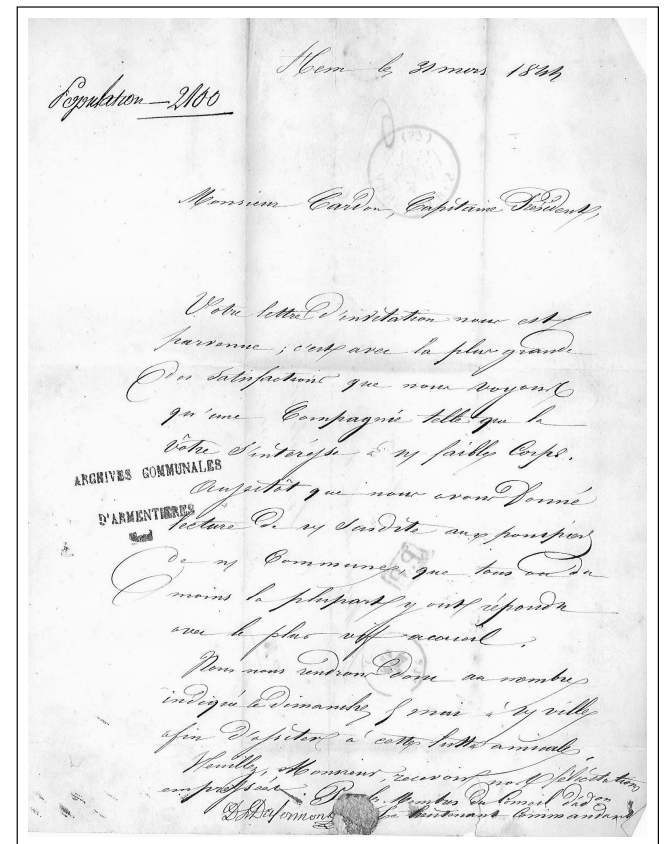 Hem le 31 mars 1844
Population — 2100
Monsieur Cardon, Capitaine Président,
Votre lettre d'invitation nous est
parvenue ; c'est avec la plus grande
des satisfactions que nous voyons
qu'une Compagnie telle que la
Vôtre s'intéresse à nos faibles Corps.
ARCHIVES COMMUNALES
D'ARMENTIERES
Nord
Aussitôt que nous avons donné
lecture de la susdite aux pompiers
de nos Communes, que tous ou du
moins la plupart y ont répondu
avec le plus vif accueil.
Nous nous rendrons donc au nombre
indiqué le dimanche 5 mai à la ville
afin d'assister à cette lutte amicale
Veuillez, Monsieur, recevoir nos félicitations
empressées. Les Membres du Conseil d'adon
Le Lieutenant Commandant